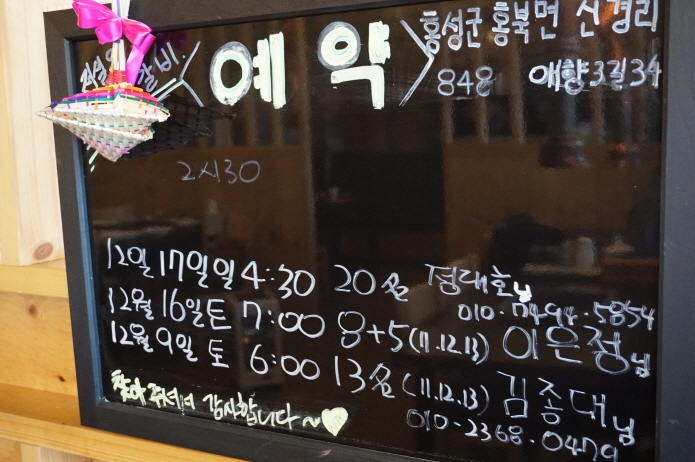 〈예약〉
홍성군 홍북면 신경리
848 애향3길34
2시30
12일 17일일 4:30 20名 정대호님
010·7494·5854
12월 16일토 7:00 8+5(11.12.13) 이은정님
12월 9일 토 6:00 13名(11.12.13) 김종대님
010-2368·0479
찾아 주셔서 감사합니다~♥